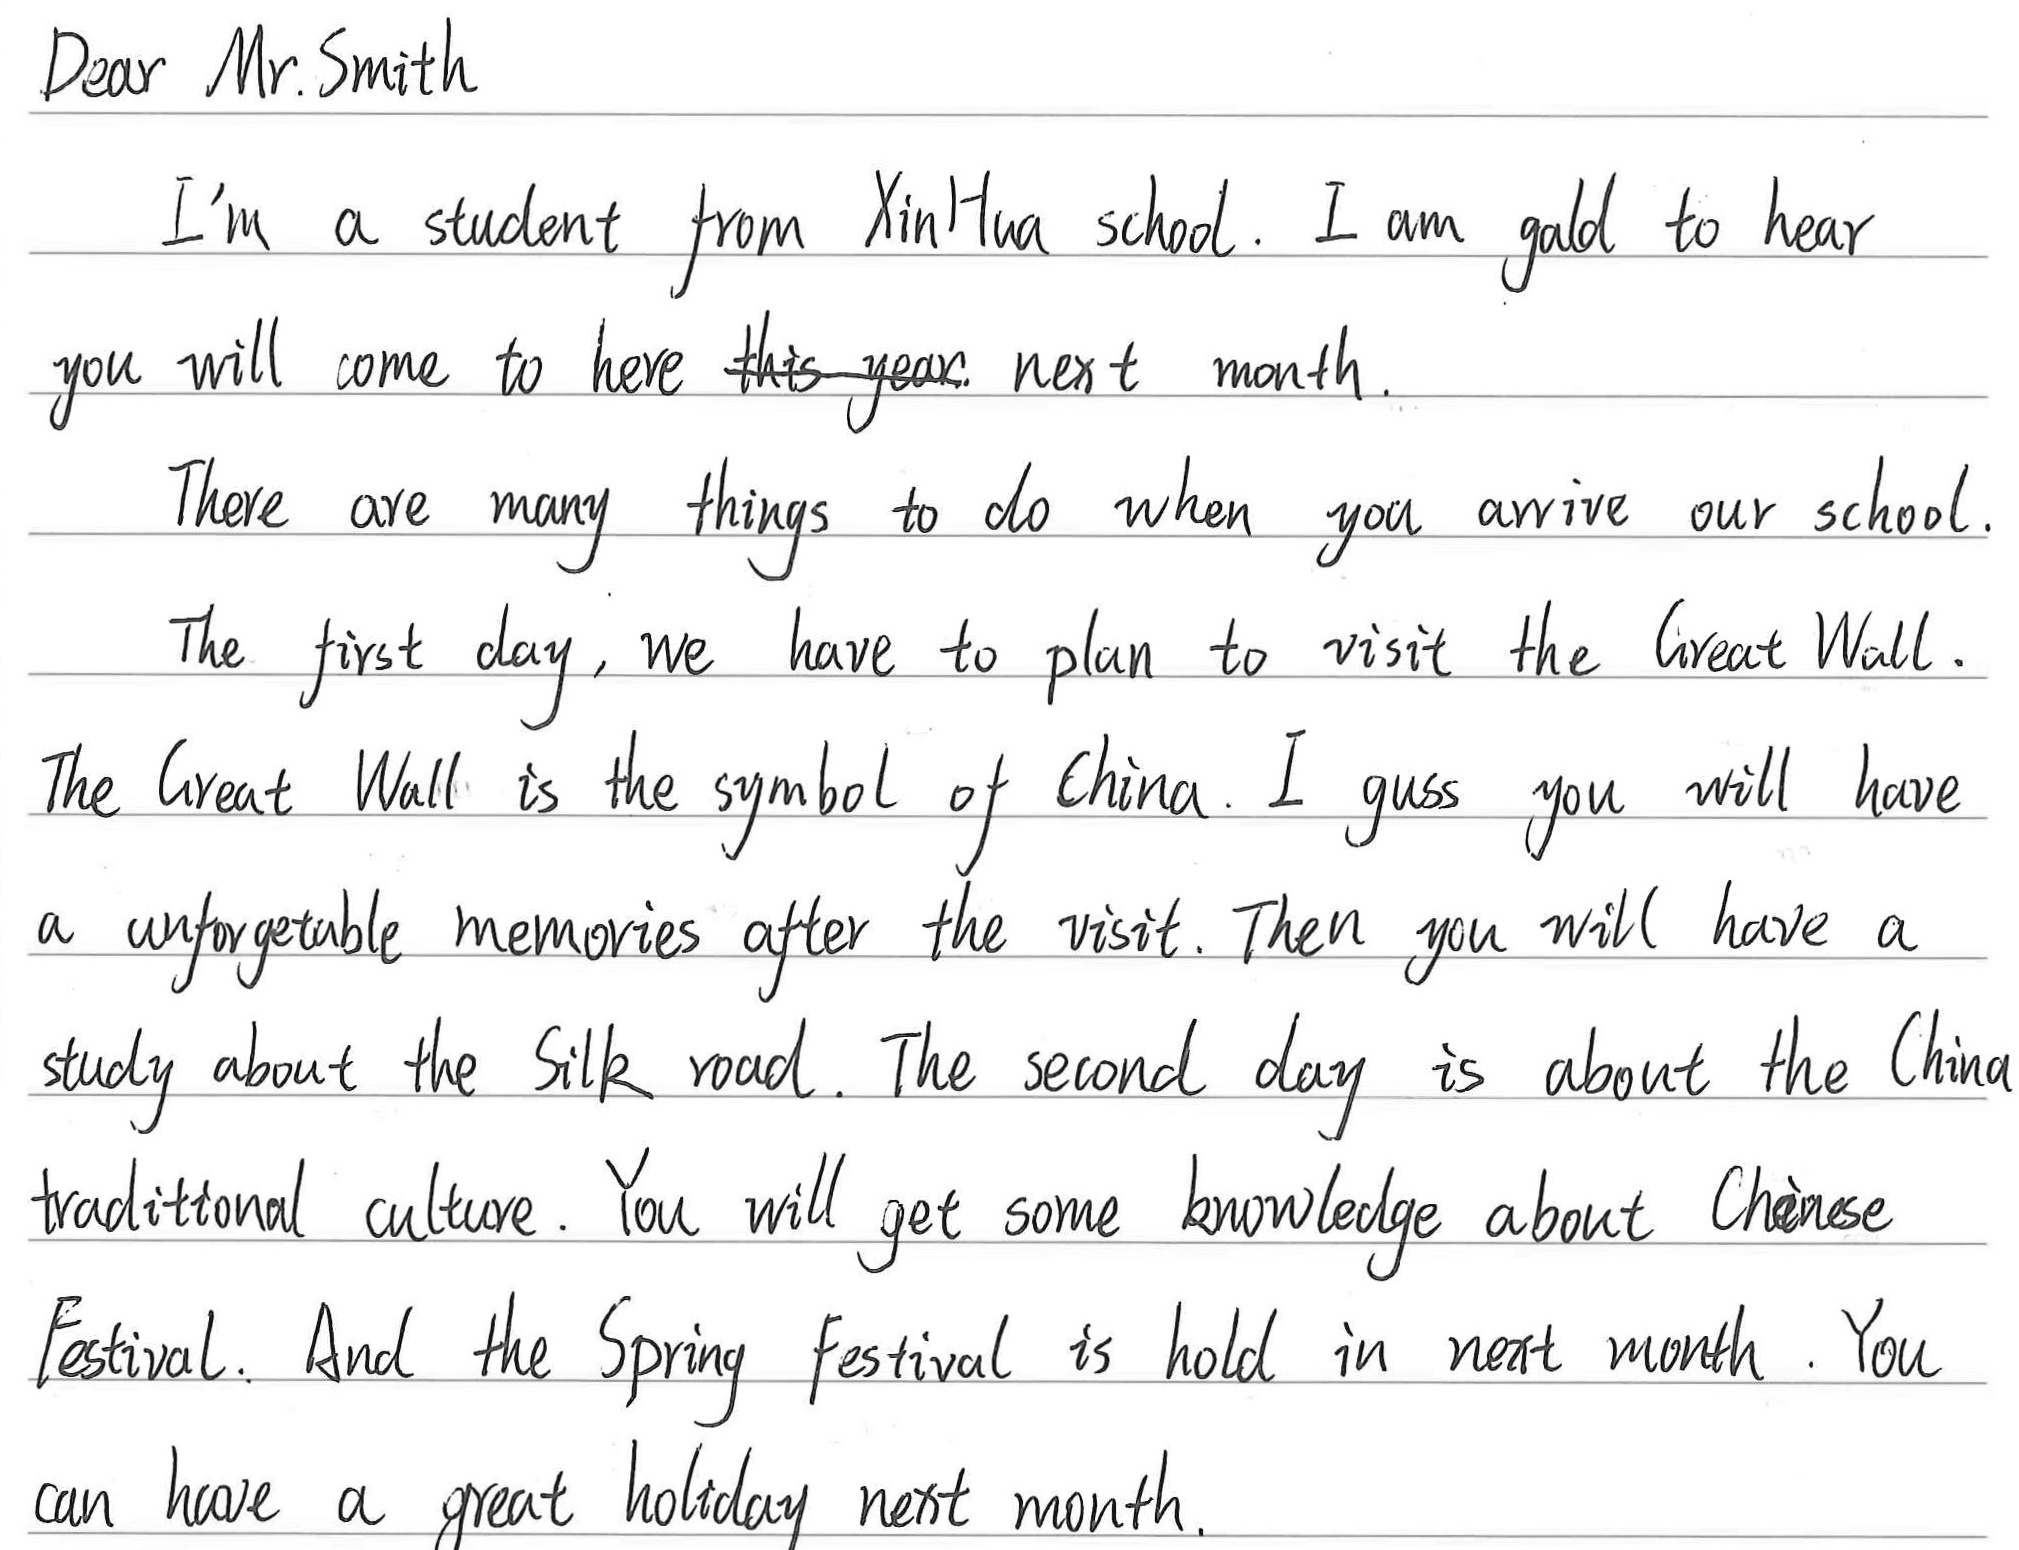 Dear Mr. Smith
I'm a student from XinHua school. I am gald to hear
you will come to here this year. next month.
There are many things to do when you arrive our school.
The first day, we have to plan to visit the Great Wall.
The Great Wall is the symbol of China. I guss you will have
a unforgetable memories after the visit. Then you will have a
study about the Silk road. The second day is about the China
traditional culture. You will get some knowledge about Chinese
Festival. And the Spring Festival is hold in next month. You
can have a great holiday next month.